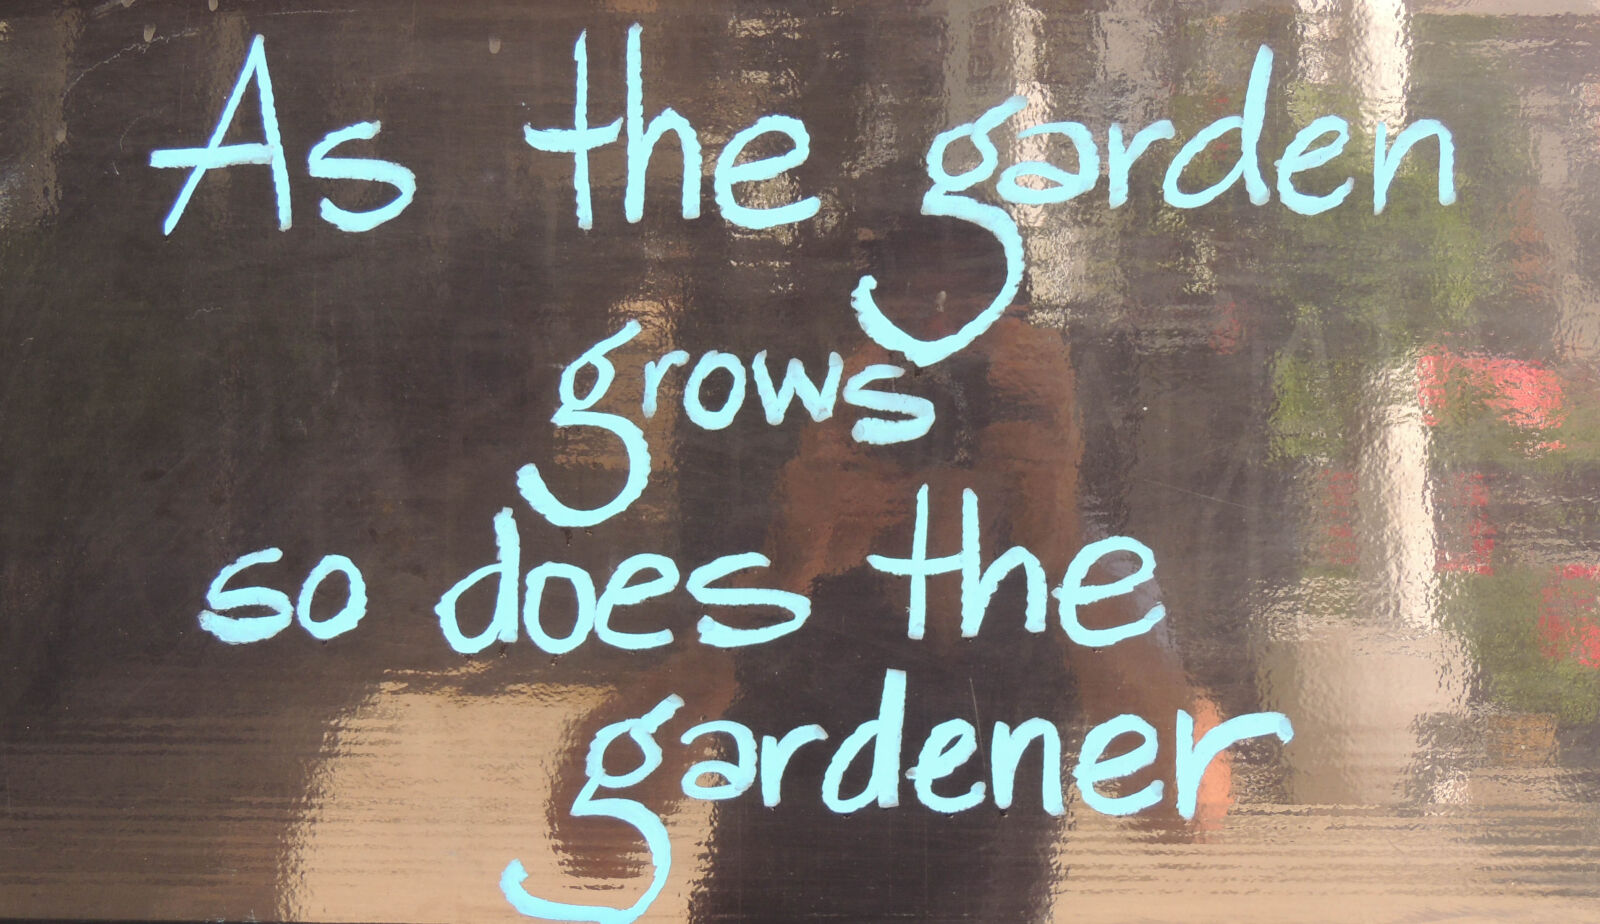 As the garden
grows
so does the
gardener